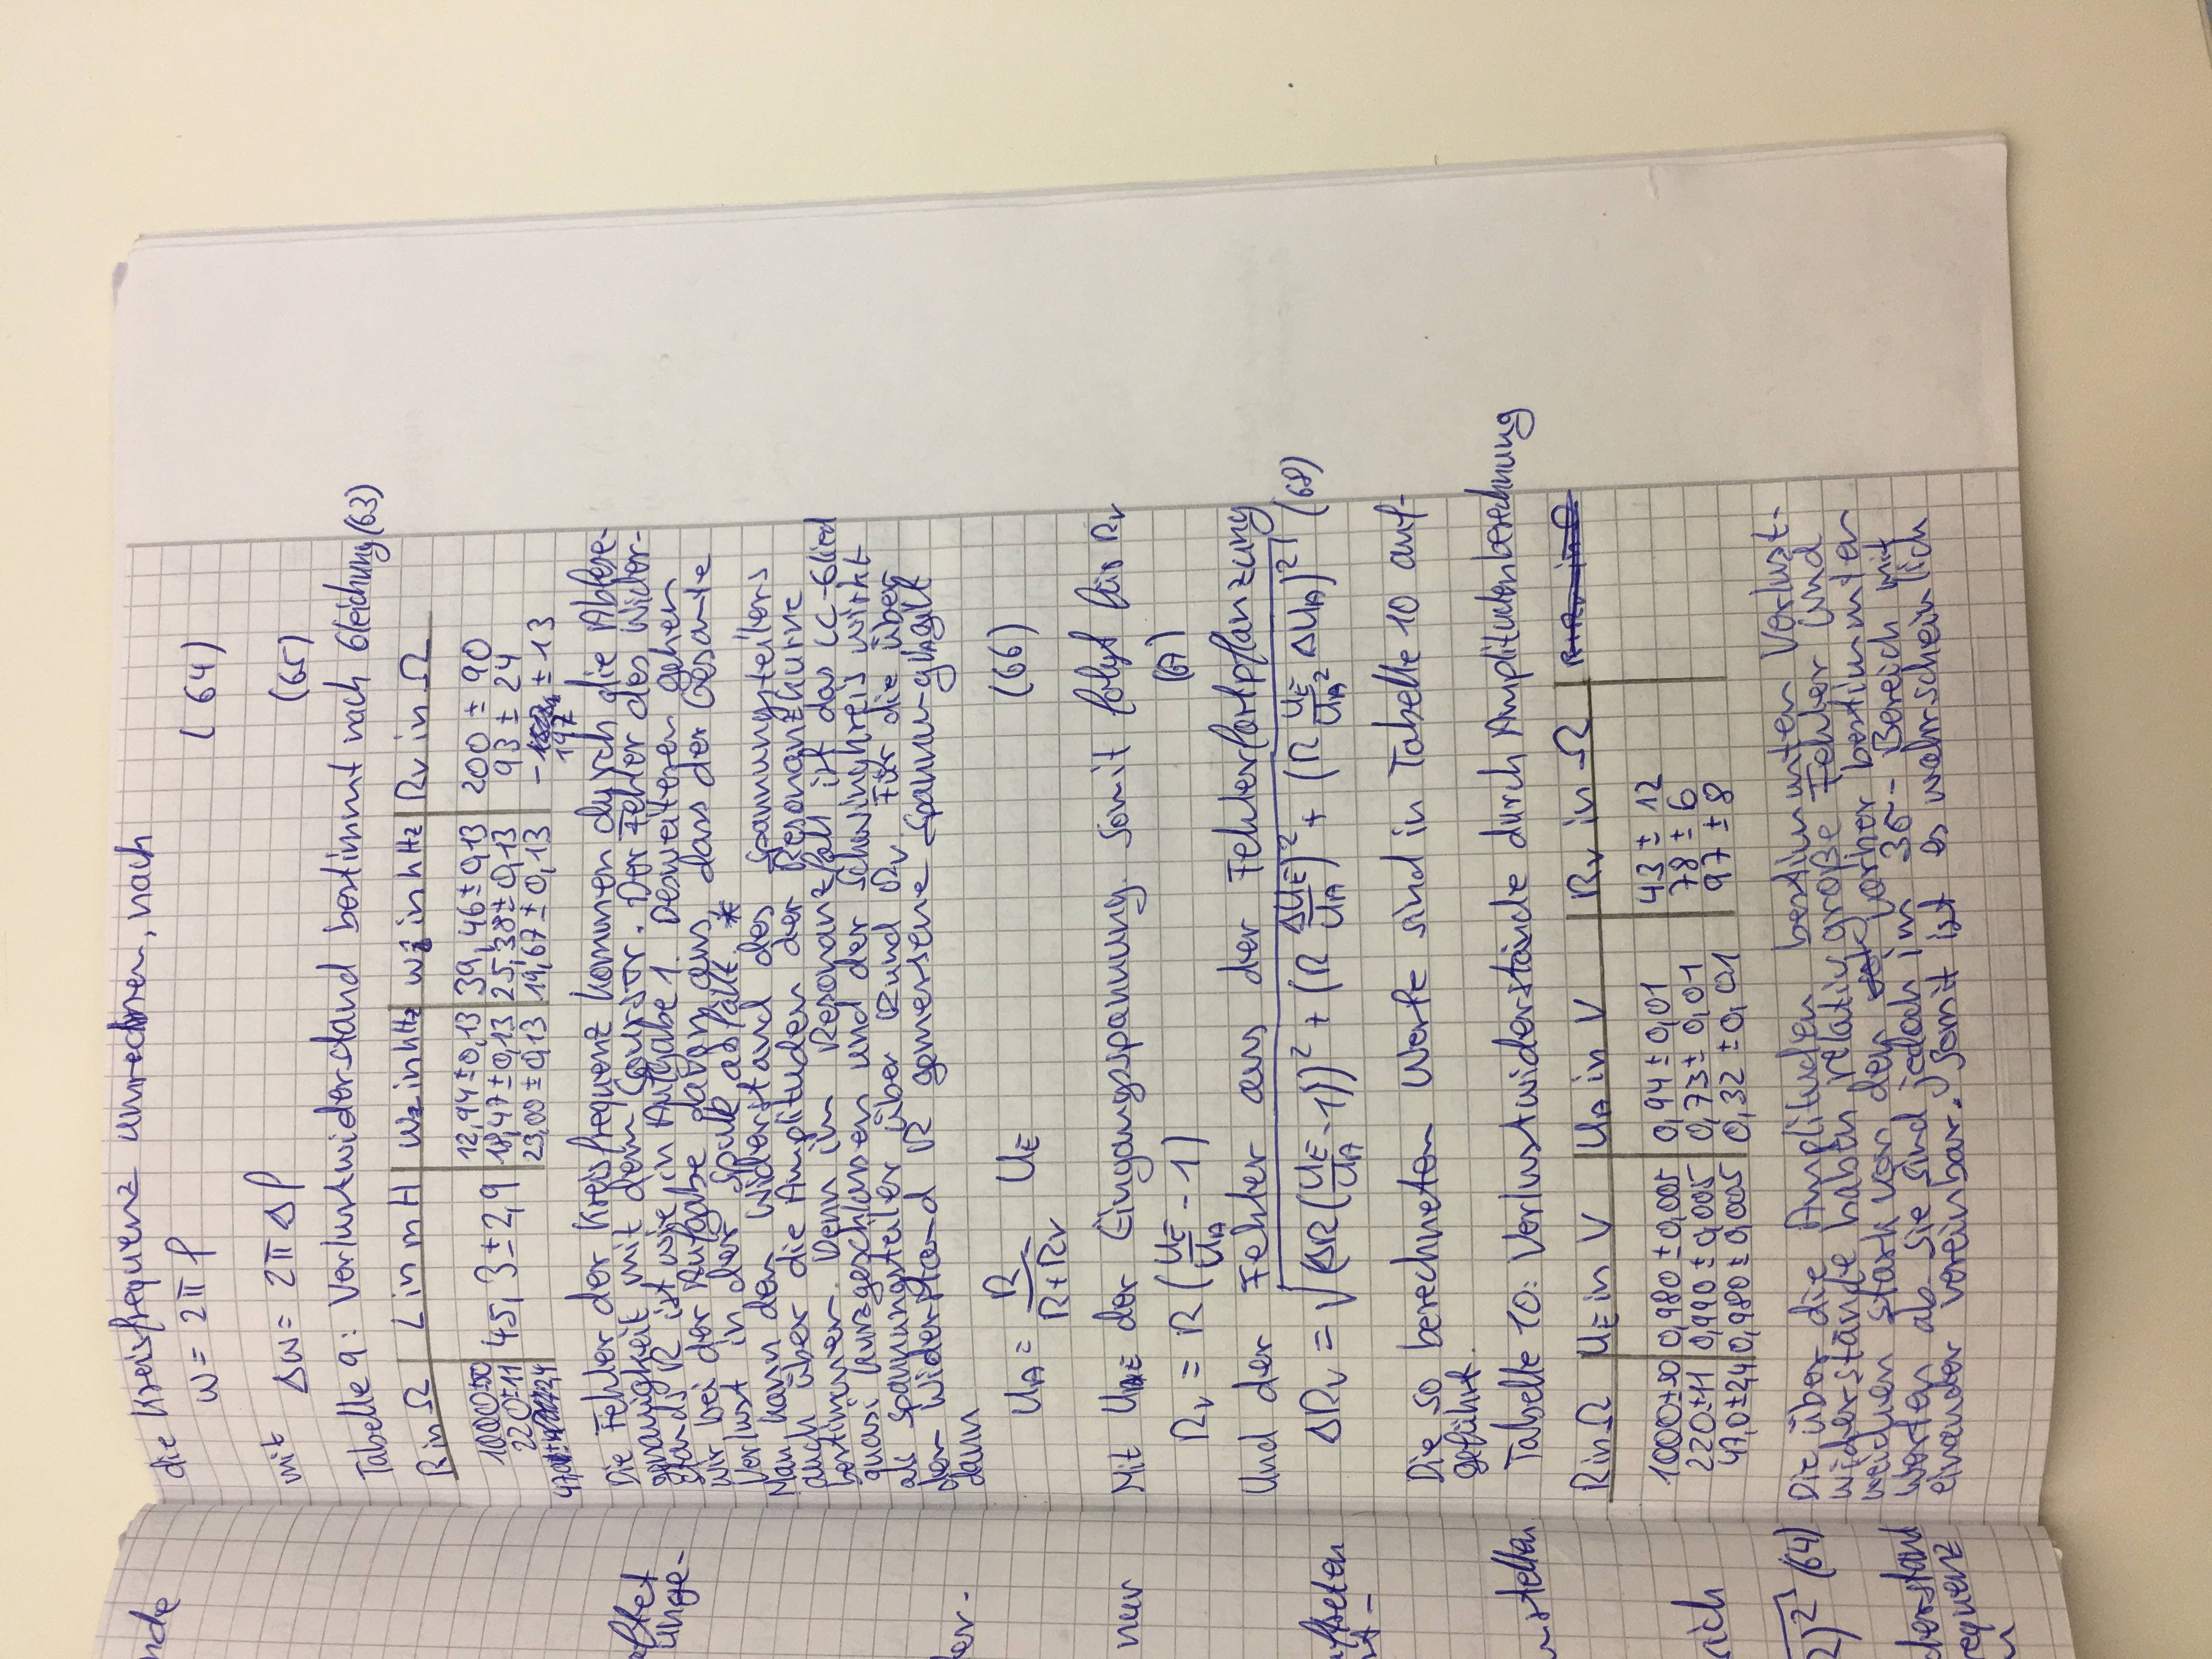 die Kreisfrequenz umrechnen, nach
ω = 2π f (64)
mit Δω = 2π Δf (65)
Tabelle 9: Verlustwiderstand bestimmt nach Gleichung (63)
R in Ω | L in mH | ω2 in kHz | ω1 in kHz | Rv in Ω
1000±50 12,94±0,13 39,46±0,13 200 ± 90
220±11 45,3±2,9 18,47±0,13 25,38±0,13 93 ± 24
47,0 2,4 23,00±0,13 19,67±0,13 - 197 ± 13
Die Fehler der Kreisfrequenz kommen durch die Ablese-
genauigkeit mit dem Coursor. Der Fehler des Wider-
stands R ist wie in Aufgabe 1. Desweiteren gehen
wir bei der Aufgabe davon aus, dass der Gesamte
Verlust in der Spule abfällt. *
Man kann den Widerstand des Spannungsteilers
auch über die Amplituden der Resonanzkurve
bestimmen. Denn im Resonanzfall ist das LC-Glied
quasi kurzgeschlossen und der Schwingkreis wirkt
als Spannungsteiler über R und Rv. Für die über
den Widerstand R gemessene Spannung UA gilt
dann
UA = R/(R+Rv) UE (66)
Mit UE der Eingangsspannung. Somit folgt für Rv
Rv = R (UE/UA - 1) (67)
Und der Fehler aus der Fehlerfortpflanzung
ΔRv = √((ΔR(UE/UA - 1))² + (R ΔUE/UA)² + (R UE/UA² ΔUA)²) (68)
Die so berechneten Werte sind in Tabelle 10 auf-
geführt.
Tabelle 10: Verlustwiderstände durch Amplitudenberechnung
R in Ω | UE in V | UA in V | Rv in Ω
1000±50 0,980±0,005 0,94±0,01 43 ± 12
220±11 0,990±0,005 0,73±0,01 78 ± 6
47,0±2,4 0,980±0,005 0,32±0,01 97 ± 8
Die über die Amplituden bestimmten Verlust-
widerstände haben relativ große Fehler und
weichen stark von den vorher bestimmten
Werten ab. Sie sind jedoch im 3σ-Bereich mit
einander vereinbar. Somit ist es wahrscheinlich
unge-
nur
rich
2)² (64)
derstand
requenz